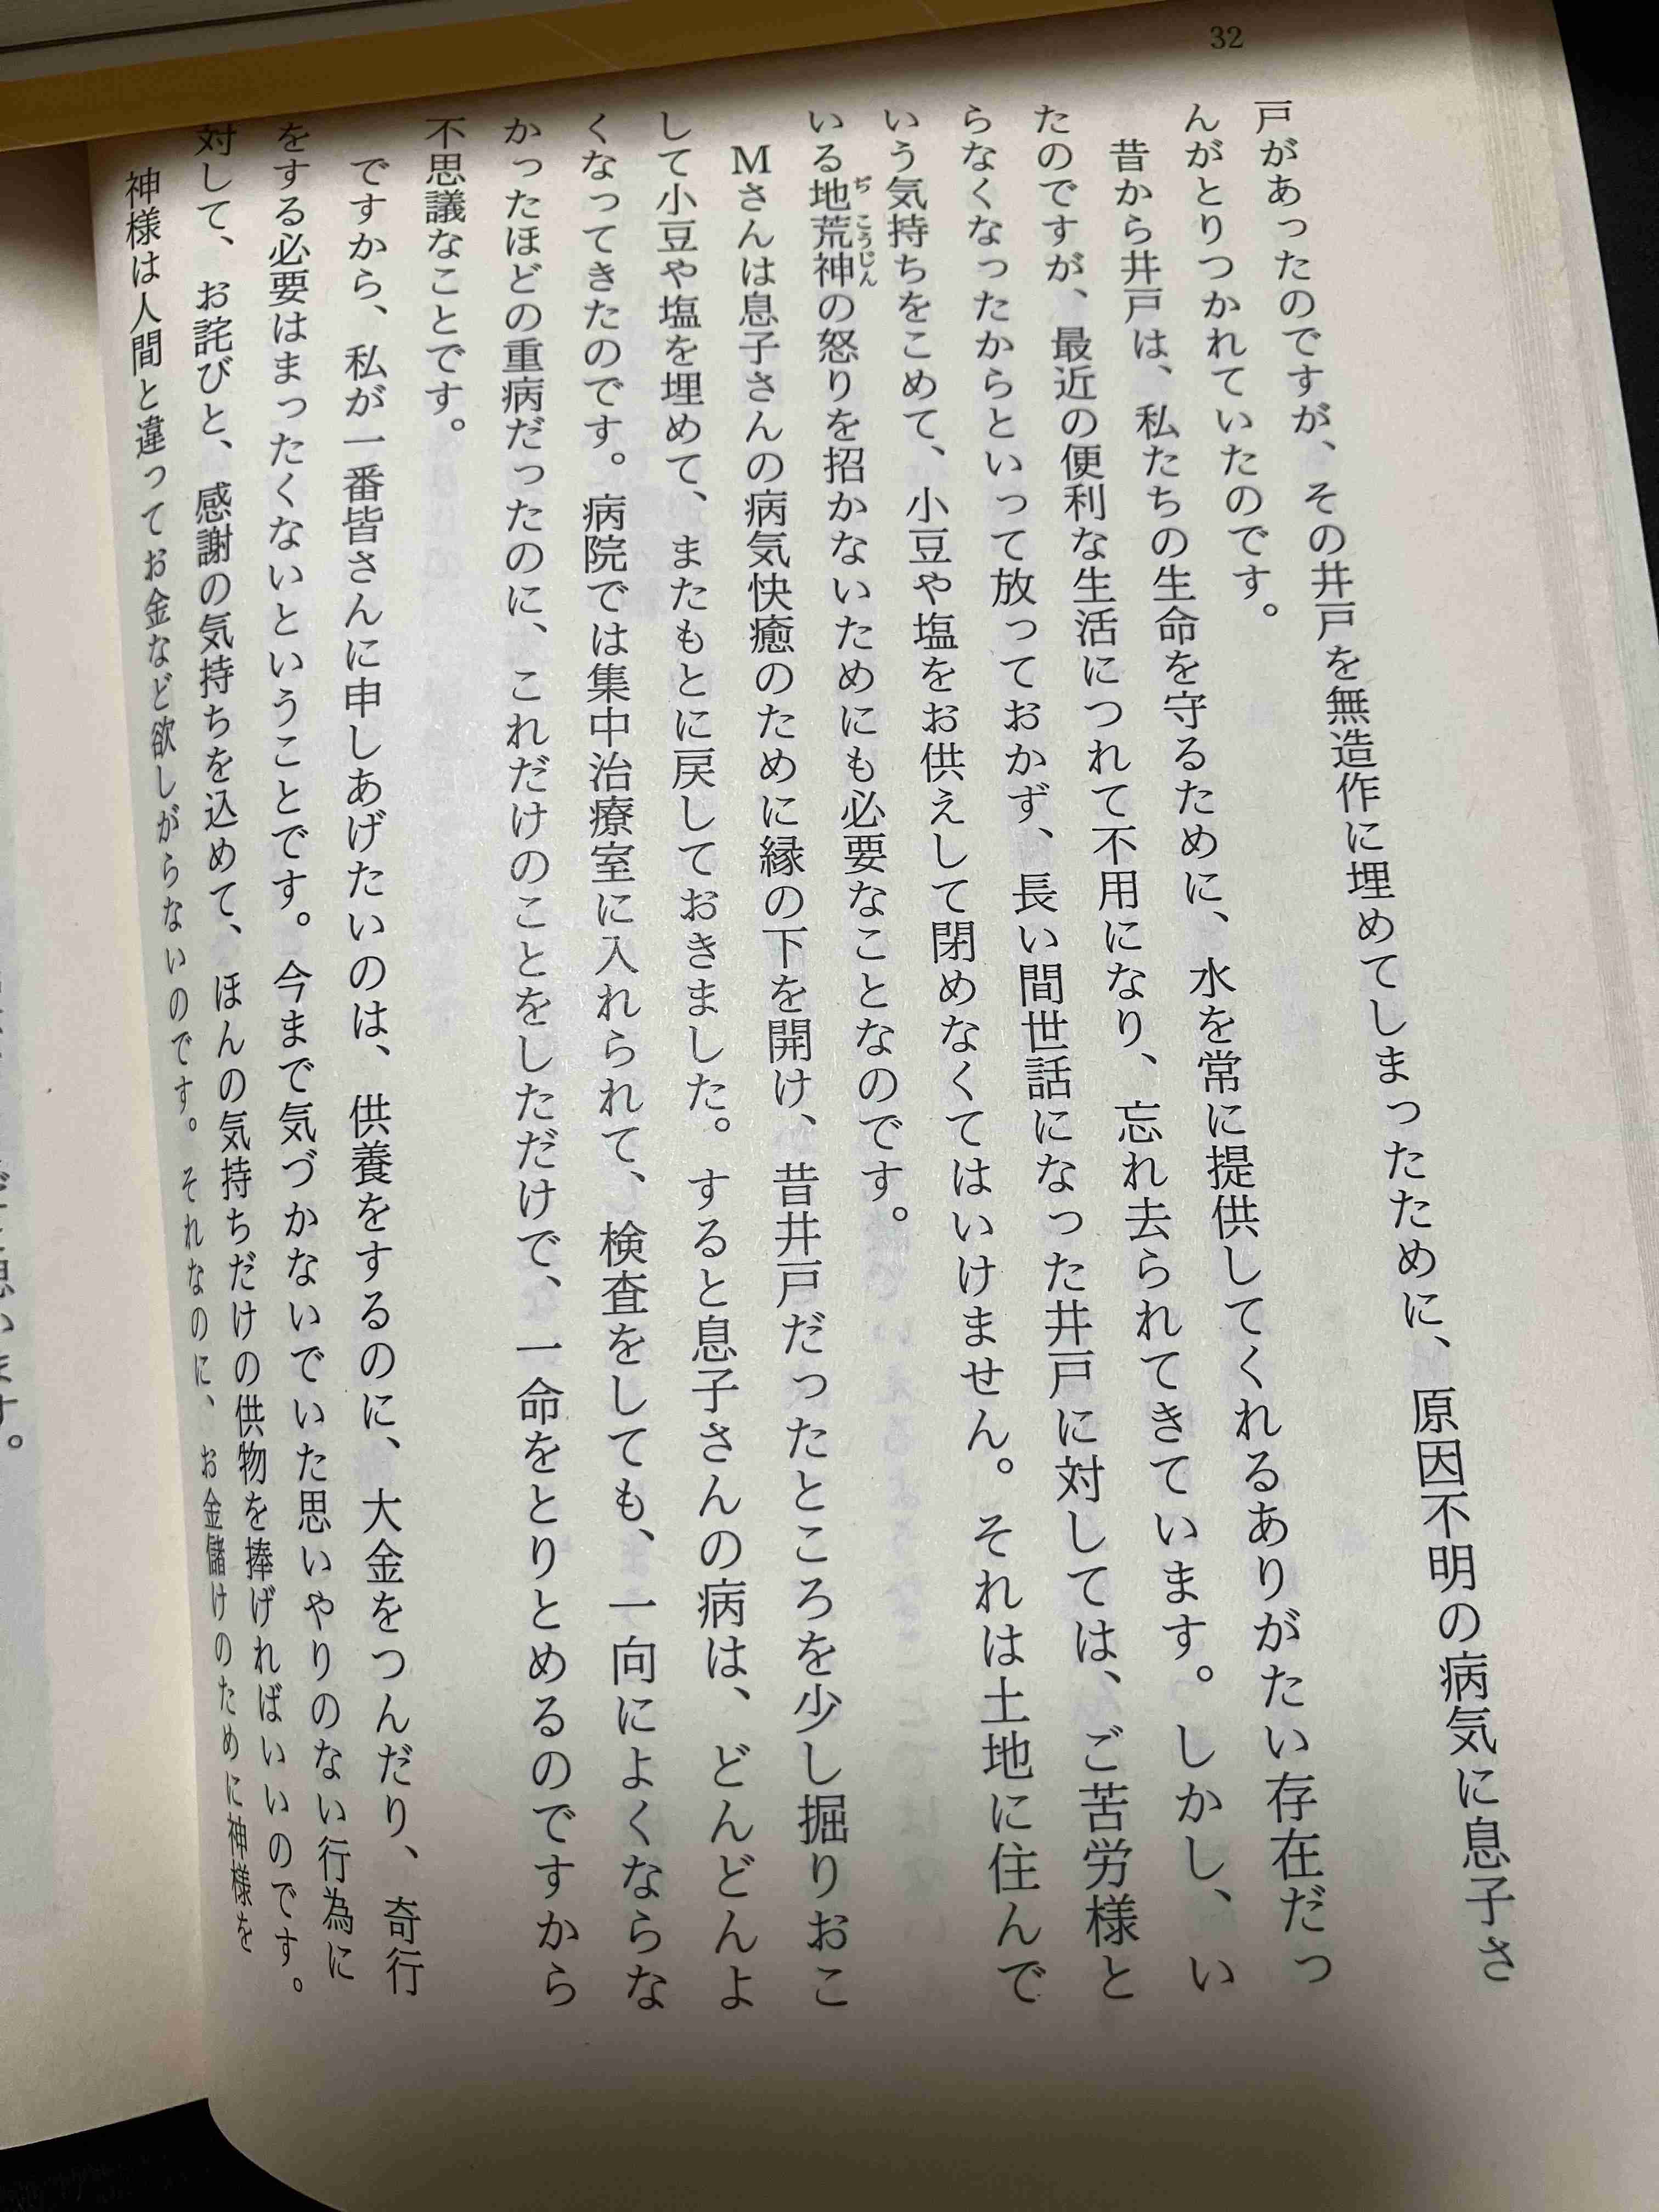 32
戸があったのですが、その井戸を無造作に埋めてしまったために、原因不明の病気に息子さ
んがとりつかれていたのです。
昔から井戸は、私たちの生命を守るために、水を常に提供してくれるありがたい存在だっ
たのですが、最近の便利な生活につれて不用になり、忘れ去られてきています。しかし、い
らなくなったからといって放っておかず、長い間世話になった井戸に対しては、ご苦労様と
いう気持ちをこめて、小豆や塩をお供えして閉めなくてはいけません。それは土地に住んで
いる地荒神の怒りを招かないためにも必要なことなのです。
ぢ こうじん
Mさんは息子さんの病気快癒のために縁の下を開け、昔井戸だったところを少し掘りおこ
して小豆や塩を埋めて、またもとに戻しておきました。すると息子さんの病は、どんどんよ
くなってきたのです。病院では集中治療室に入れられて、検査をしても、一向によくならな
かったほどの重病だったのに、これだけのことをしただけで、一命をとりとめるのですから
不思議なことです。
ですから、私が一番皆さんに申しあげたいのは、供養をするのに、大金をつんだり、奇行
をする必要はまったくないということです。今まで気づかないでいた思いやりのない行為に
対して、お詫びと、感謝の気持ちを込めて、ほんの気持ちだけの供物を捧げればいいのです。
神様は人間と違ってお金など欲しがらないのです。それなのに、お金儲けのために神様を
います。